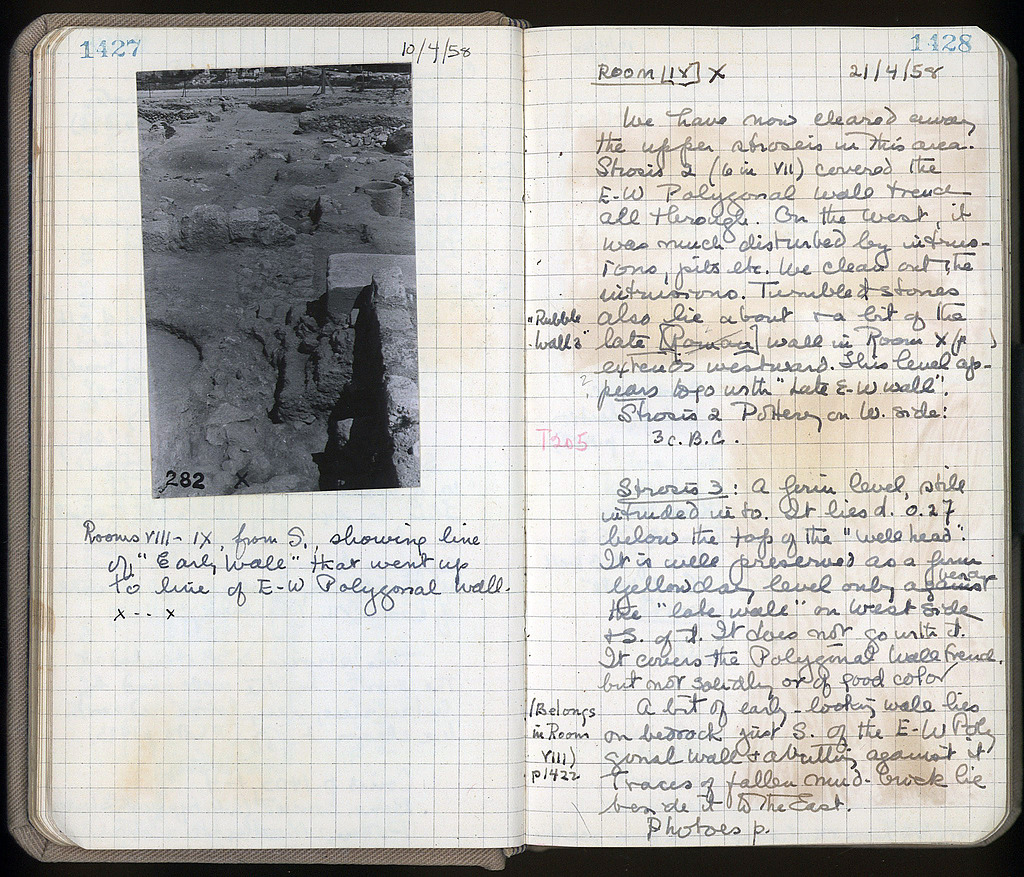 1427
10/4/58
282 X
Rooms VIII - IX, from S., showing line
of "Early Wall" that went up
to line of E-W Polygonal wall.
x - - x
1428
ROOM IX X
21/4/58
We have now cleared away
the upper stroseis in this area.
Strosis 2 (6 in VII) covered the
E-W Polygonal wall trench
all through. On the West, it
was much disturbed by intrus-
ions, pits etc. We clean out the
intrusions. Tumbled stones
"Rubble
walls"
also lie about & a bit of the
late [Roman] wall in Room X (p )
extends westward. This level ap-
pears to go with "Late E-W wall".
Strosis 2 Pottery on W. side:
T205
3 c. B.C.
Strosis 3: A firm level, still
intruded into. It lies d. 0.27
below the top of the "well head".
It is well preserved as a firm
yellow clay level only against
the "late wall" on West side
& S. of it. It does not go with it.
It covers the Polygonal Wall trench
but not solidly or of good color
(Belongs
in Room
VIII)
p1422
A bit of early-looking wall lies
on bedrock just S. of the E-W Poly
gonal wall & abutting against it
Traces of fallen mud-brick lie
beside it to the East.
Photoes p.